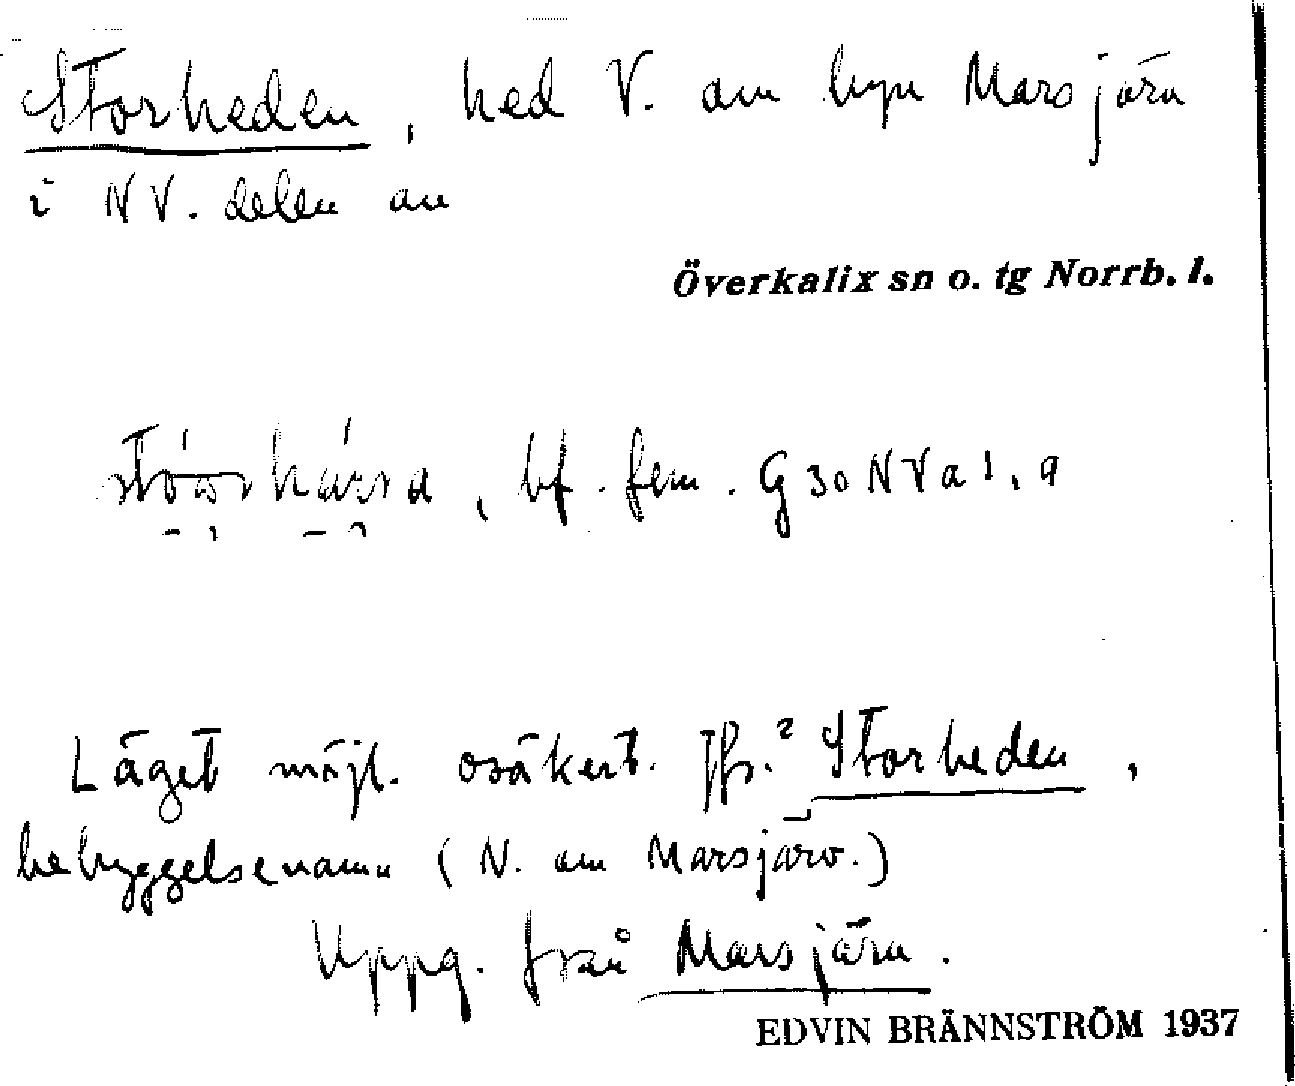 Storheden, hed V. om byn Marsjärv
i NV. delen av
Överkalix sn o. tg Norrb. l.
bf. fem. G 30 NV a 1, 9
Läget möjl. osäkert. Jfr.? Storheden,
bebyggelsenamn (N. om Marsjärv.)
Uppg. från Marsjärv.
EDVIN BRÄNNSTRÖM 1937